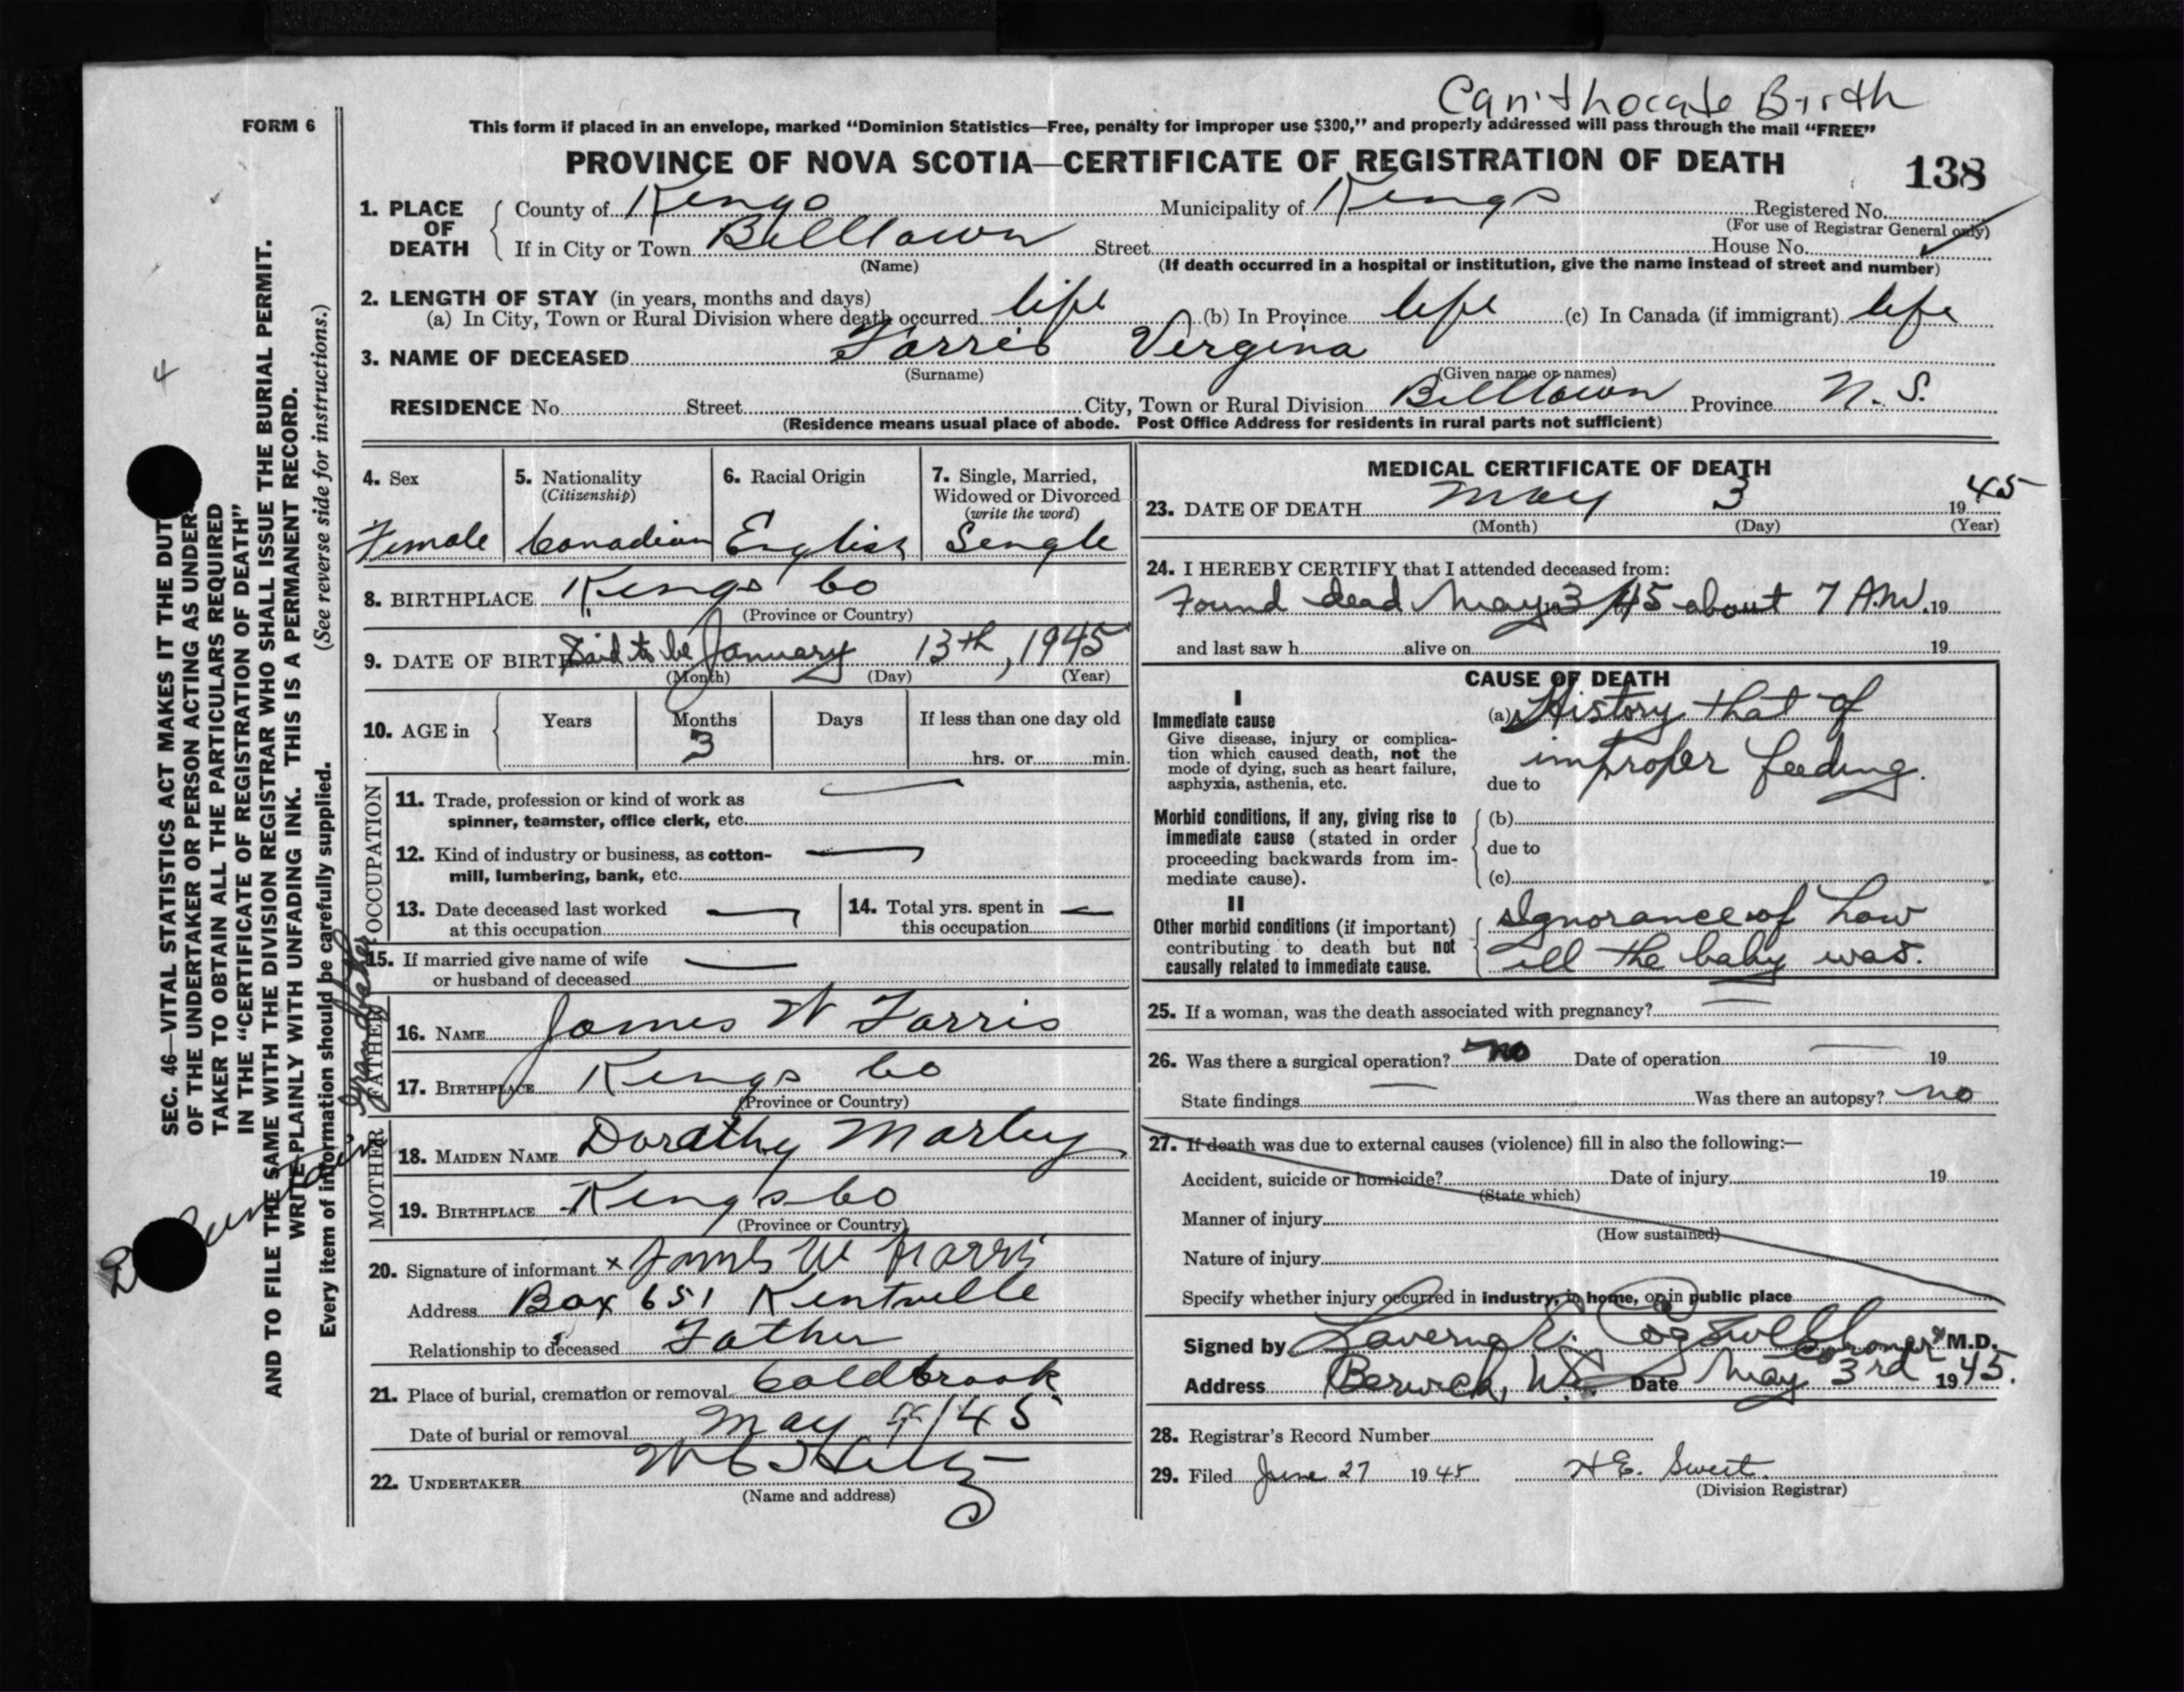 Can't hocate Birth
FORM 6
This form if placed in an envelope, marked "Dominion Statistics—Free, penalty for improper use $300," and properly addressed will pass through the mail "FREE"
PROVINCE OF NOVA SCOTIA—CERTIFICATE OF REGISTRATION OF DEATH
138
1. PLACE OF DEATH
County of Kings Municipality of Kings Registered No.
(For use of Registrar General only)
If in City or Town Billtown Street House No.
(Name) (If death occurred in a hospital or institution, give the name instead of street and number)
2. LENGTH OF STAY (in years, months and days)
(a) In City, Town or Rural Division where death occurred life (b) In Province life (c) In Canada (if immigrant) life
3. NAME OF DECEASED Farris Vergina
(Surname) (Given name or names)
RESIDENCE No. Street City, Town or Rural Division Billtown Province N. S.
(Residence means usual place of abode. Post Office Address for residents in rural parts not sufficient)
4. Sex Female
5. Nationality (Citizenship) Canadian
6. Racial Origin English
7. Single, Married, Widowed or Divorced (write the word) Single
8. BIRTHPLACE Kings Co
(Province or Country)
9. DATE OF BIRTH Said to be January 13th, 1945
(Month) (Day) (Year)
10. AGE in Years Months 3 Days If less than one day old
hrs. or min.
OCCUPATION
11. Trade, profession or kind of work as
spinner, teamster, office clerk, etc.
12. Kind of industry or business, as cotton-
mill, lumbering, bank, etc.
13. Date deceased last worked
at this occupation
14. Total yrs. spent in
this occupation
15. If married give name of wife
or husband of deceased
FATHER
16. NAME James W Farris
17. BIRTHPLACE Kings Co
(Province or Country)
MOTHER
18. MAIDEN NAME Dorathy Marley
19. BIRTHPLACE Kings Co
(Province or Country)
20. Signature of informant x James W Farris
Address Box 651 Kentville
Relationship to deceased Father
21. Place of burial, cremation or removal Coldbrook
Date of burial or removal May 4/45
22. UNDERTAKER
(Name and address)
MEDICAL CERTIFICATE OF DEATH
23. DATE OF DEATH May 3 1945
(Month) (Day) (Year)
24. I HEREBY CERTIFY that I attended deceased from:
Found dead May 3/45 about 7 A.M. 19
and last saw h alive on 19
CAUSE OF DEATH
I
Immediate cause
Give disease, injury or complica-
tion which caused death, not the
mode of dying, such as heart failure,
asphyxia, asthenia, etc.
(a) History that of
improper feeding.
due to
Morbid conditions, if any, giving rise to
immediate cause (stated in order
proceeding backwards from im-
mediate cause).
(b)
due to
(c)
II
Other morbid conditions (if important)
contributing to death but not
causally related to immediate cause.
Ignorance of how
ill the baby was.
25. If a woman, was the death associated with pregnancy?
26. Was there a surgical operation? no Date of operation 19
State findings Was there an autopsy? no
27. If death was due to external causes (violence) fill in also the following:—
Accident, suicide or homicide? Date of injury 19
(State which)
Manner of injury
(How sustained)
Nature of injury
Specify whether injury occurred in industry, in home, or in public place
Signed by Laverna E. Cogswell Coroner & M.D.
Address Berwick, N.S. Date May 3rd 1945.
28. Registrar's Record Number
29. Filed June 27 1945 H E. Swect.
(Division Registrar)
4
SEC. 46—VITAL STATISTICS ACT MAKES IT THE DUTY
OF THE UNDERTAKER OR PERSON ACTING AS UNDER-
TAKER TO OBTAIN ALL THE PARTICULARS REQUIRED
IN THE "CERTIFICATE OF REGISTRATION OF DEATH"
AND TO FILE THE SAME WITH THE DIVISION REGISTRAR WHO SHALL ISSUE THE BURIAL PERMIT.
WRITE PLAINLY WITH UNFADING INK. THIS IS A PERMANENT RECORD.
Every item of information should be carefully supplied. (See reverse side for instructions.)
Grandfather